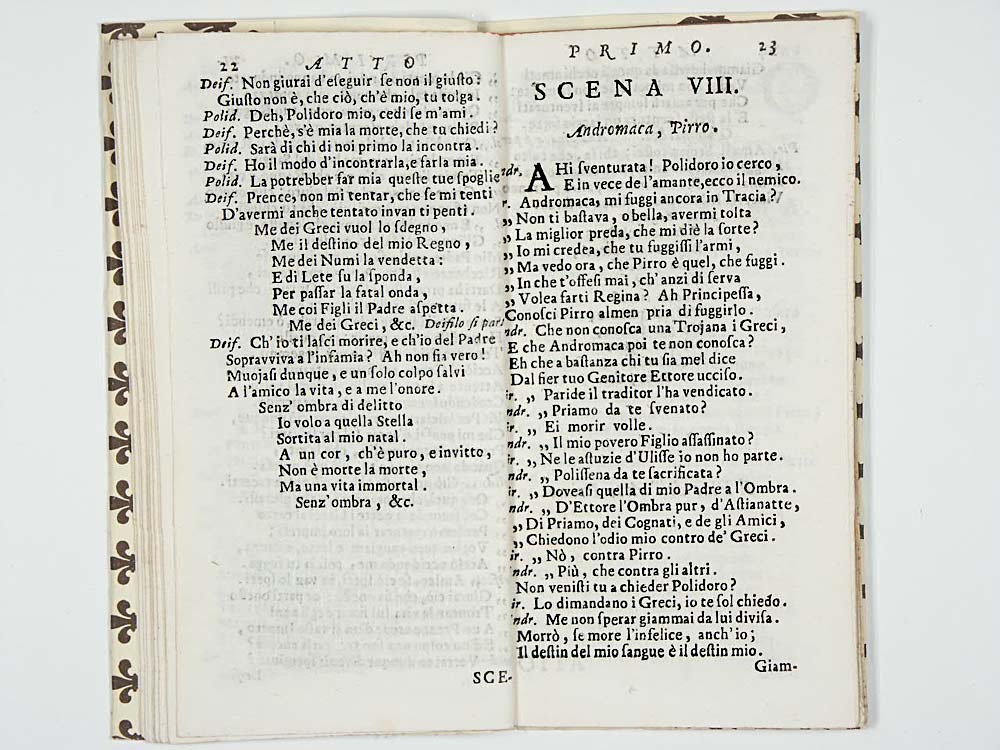 22 ATTO
Deif. Non giurai d'eſeguir ſe non il giuſto?
Giuſto non è, che ciò, ch'è mio, tu tolga.
Polid. Deh, Polidoro mio, cedi ſe m'ami.
Deif. Perchè, s'è mia la morte, che tu chiedi?
Polid. Sarà di chi di noi primo la incontra.
Deif. Ho il modo d'incontrarla, e farla mia.
Polid. La potrebber far mia queſte tue ſpoglie
Deif. Prence, non mi tentar, che ſe mi tenti
D'avermi anche tentato invan ti penti.
Me dei Greci vuol lo ſdegno,
Me il deſtino del mio Regno,
Me dei Numi la vendetta:
E di Lete ſu la ſponda,
Per paſſar la fatal onda,
Me coi Figli il Padre aſpetta.
Me dei Greci, &c. Deifilo ſi part
Deif. Ch' io ti laſci morire, e ch'io del Padre
Sopravviva a l'infamia? Ah non ſia vero!
Muojaſi dunque, e un ſolo colpo ſalvi
A l'amico la vita, e a me l'onore.
Senz' ombra di delitto
Io volo a quella Stella
Sortita al mio natal.
A un cor, ch'è puro, e invitto,
Non è morte la morte,
Ma una vita immortal.
Senz' ombra, &c.
SCE-
PRIMO. 23
SCENA VIII.
Andromaca, Pirro.
ndr. AHi ſventurata! Polidoro io cerco,
E in vece de l'amante, ecco il nemico.
r. Andromaca, mi fuggi ancora in Tracia?
„ Non ti baſtava, o bella, avermi tolta
„ La miglior preda, che mi diè la ſorte?
„ Io mi credea, che tu fuggiſſi l'armi,
„ Ma vedo ora, che Pirro è quel, che fuggi.
„ In che t'offeſi mai, ch'anzi di ſerva
„ Volea farti Regina? Ah Principeſſa,
Conoſci Pirro almen pria di fuggirlo.
ndr. Che non conoſca una Trojana i Greci,
E che Andromaca poi te non conoſca?
Eh che a baſtanza chi tu ſia mel dice
Dal fier tuo Genitore Ettore ucciſo.
ir. „ Paride il traditor l'ha vendicato.
ndr. „ Priamo da te ſvenato?
ir. „ Ei morir volle.
ndr. „ Il mio povero Figlio aſſaſſinato?
ir. „ Ne le aſtuzie d'Uliſſe io non ho parte.
ndr. „ Poliſſena da te ſacrificata?
ir. „ Doveaſi quella di mio Padre a l'Ombra.
ndr. „ D'Ettore l'Ombra pur, d'Aſtianatte,
„ Di Priamo, dei Cognati, e de gli Amici,
„ Chiedono l'odio mio contro de' Greci.
ir. „ Nò, contra Pirro.
ndr. „ Più, che contra gli altri.
Non veniſti tu a chieder Polidoro?
ir. Lo dimandano i Greci, io te ſol chiedo.
ndr. Me non ſperar giammai da lui diviſa.
Morrò, ſe more l'infelice, anch'io;
Il deſtin del mio ſangue è il deſtin mio.
Giam-